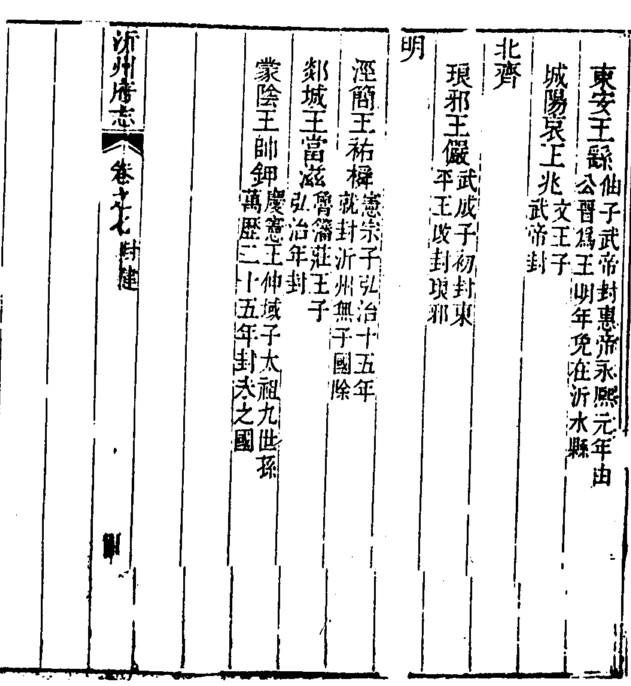 東安王繇仙子武帝封惠帝永熙元年由
公晉爲王明年免在沂水縣
城陽哀王兆文王子
武帝封
北齊
琅邪王儼武成子初封東
平王改封琅邪
明
涇簡王祐橓憲宗子弘治十五年
就封沂州無子國除
郯城王當滋魯藩莊王子
弘治年封
蒙陰王帥鉀慶憲王伸域子太祖九世孫
萬歷二十五年封未之國
沂州府志 卷之七 封建